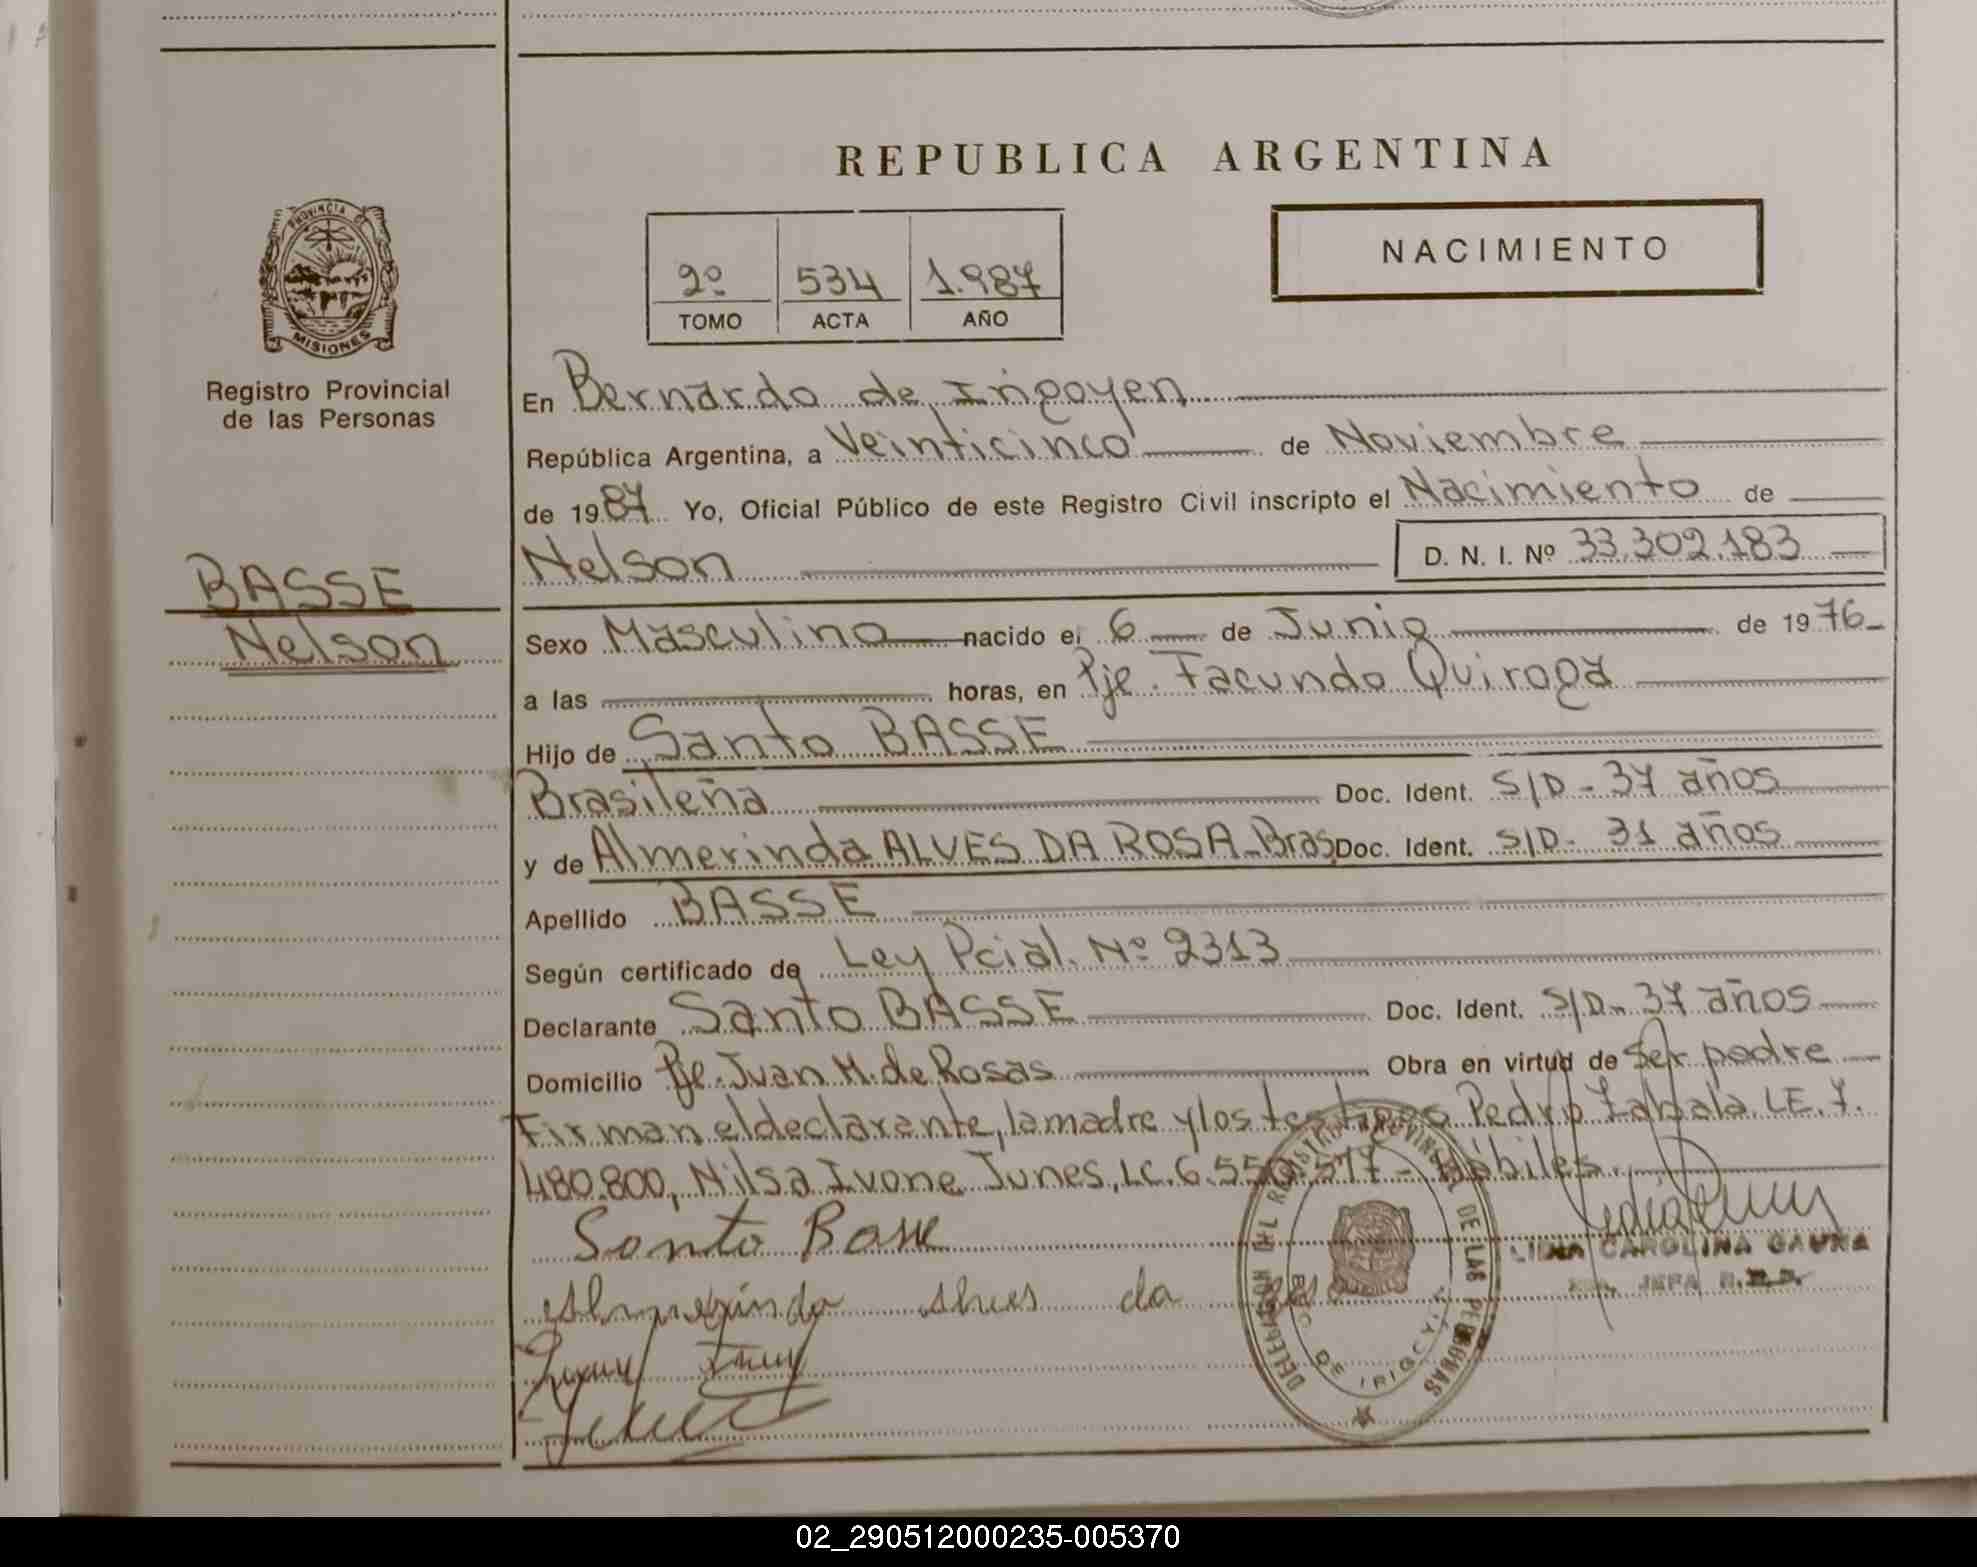 REPUBLICA ARGENTINA
NACIMIENTO
2º 534 1.987
TOMO ACTA AÑO
PROVINCIA DE
MISIONES
Registro Provincial
de las Personas
BASSE
Nelson
En Bernardo de Irigoyen
República Argentina, a Veinticinco de Noviembre
de 1987 Yo, Oficial Público de este Registro Civil inscripto el Nacimiento de
Nelson D. N. I. Nº 33.302.183
Sexo Masculino nacido el 6 de Junio de 1976
a las horas, en Pje. Facundo Quiroga
Hijo de Santo BASSE
Brasileña Doc. Ident. S/D - 37 años
y de Almerinda ALVES DA ROSA - Bras. Doc. Ident. S/D - 31 años
Apellido BASSE
Según certificado de Ley Pcial. Nº 2313
Declarante Santo BASSE Doc. Ident. S/D - 37 años
Domicilio Pje. Juan M. de Rosas Obra en virtud de ser padre
Firman el declarante, la madre y los testigos Pedro Zabala L.E. 7.
480.800, Nilsa Ivone Junes, LC. 6.550.577 - Hábiles.
Santo Basse
da
LIINA CAROLINA
JEFA
DELEGACION DEL REGISTRO PROVINCIAL DE LAS PERSONAS
BDO DE IRIGOYEN
02_290512000235-005370